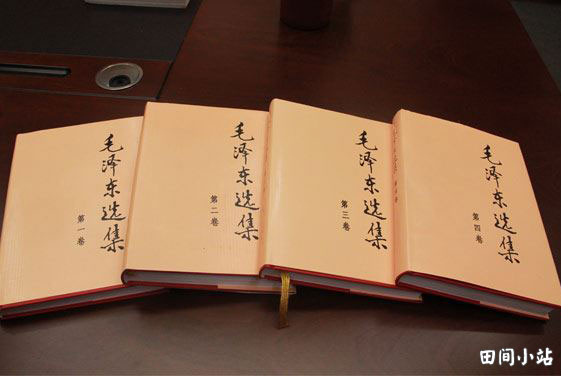 毛泽东选集
第一卷
毛泽东选集
第二卷
毛泽东选集
第三卷
毛泽东选集
第四卷
田间小站